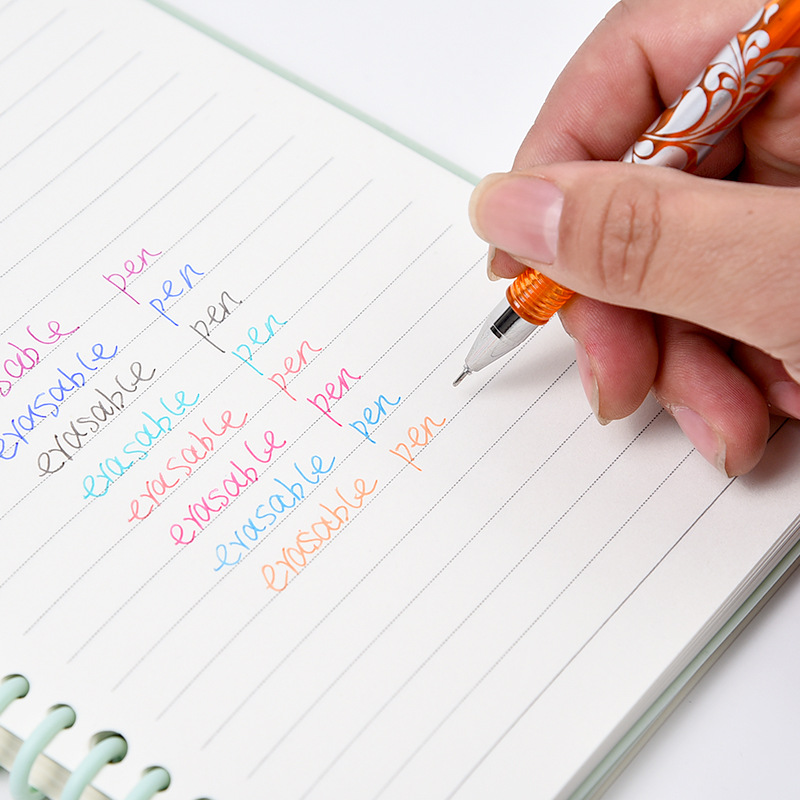 erasable pen
erasable pen
erasable pen
erasable pen
erasable pen
erasable pen
erasable pen
erasable pen